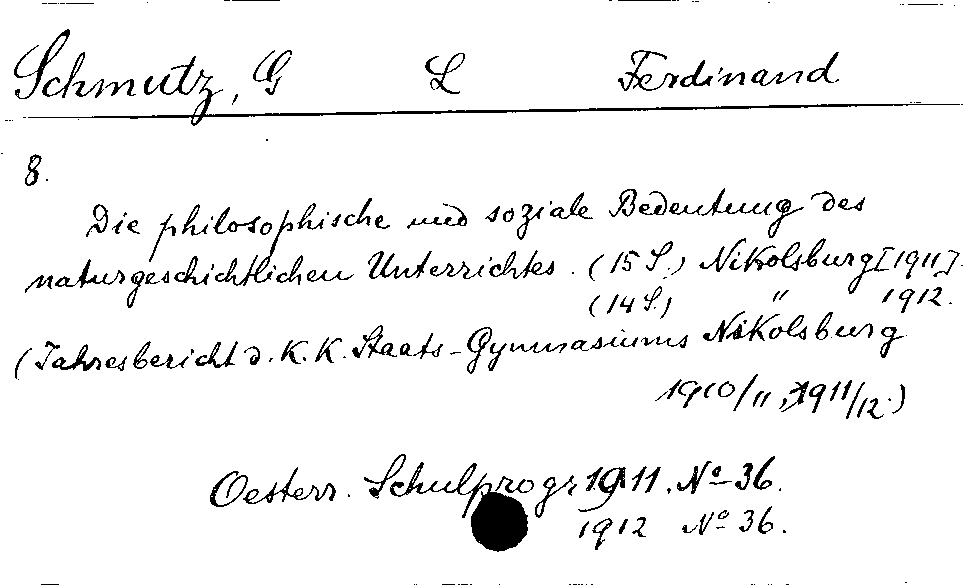 Schmutz, G L Ferdinand
8.
Die philosophische und soziale Bedeutung des
naturgeschichtlichen Unterrichtes. (15 S.) Nikolsburg [1911].
(14 S.) " 1912.
(Jahresbericht d. K. K. Staats-Gymnasiums Nikolsburg
1910/11, 1911/12.)
Oesterr. Schulprogr 1911. No 36.
1912 No 36.